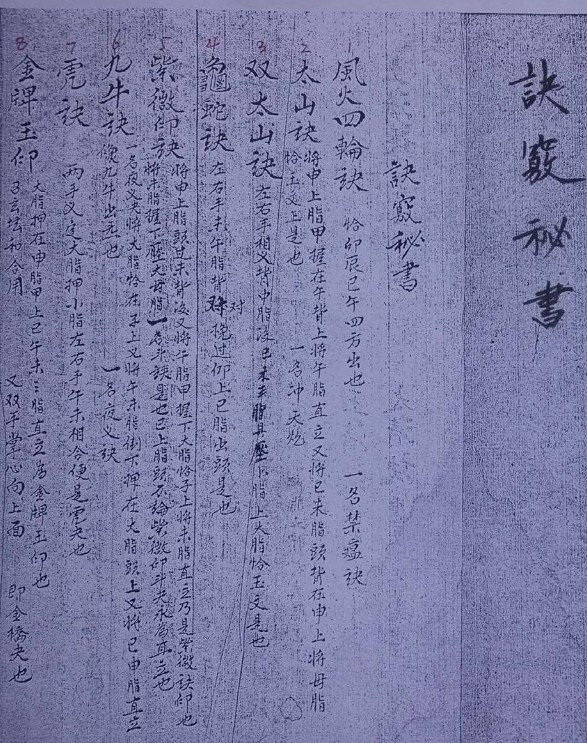 訣竅秘書
訣竅秘書
1 風火四輪訣 恰卯辰巳午四方出也 一名禁瘟訣
2 太山訣 將中上脂甲握在午背上將午脂直立又將巳未脂頭背在申上將母脂
恰玉文上是也 一名冲天炮
3 双太山訣 左右手相义背中脂後巳未 脂 壓 脂上大脂恰玉文是也
4 龜蛇訣 左右手未午脂背对 挽过仰上巳脂出頭是也
5 紫微仰訣 將申上脂頭 未背後又將午脂甲握下大脂恰子上將未脂直立乃是紫微訣仰也
將未脂握下壓大母脂一名斗訣是也巳上脂頭不論紫微仰斗夬永為直立也
6 九牛訣 一名夜义夬將大脂恰在子上又將午未脂倒下押在大脂頭上又將巳申脂直立
像九牛出兂也 一名夜义訣
7 虎訣 兩手义 大脂押小脂左右手午未相合便是 夬也
8 金牌玉仰 大脂押在申脂甲上巳午未三脂直立为金牌玉仰也
玄坛和合用 又双手掌心向上面 即金橋夬也